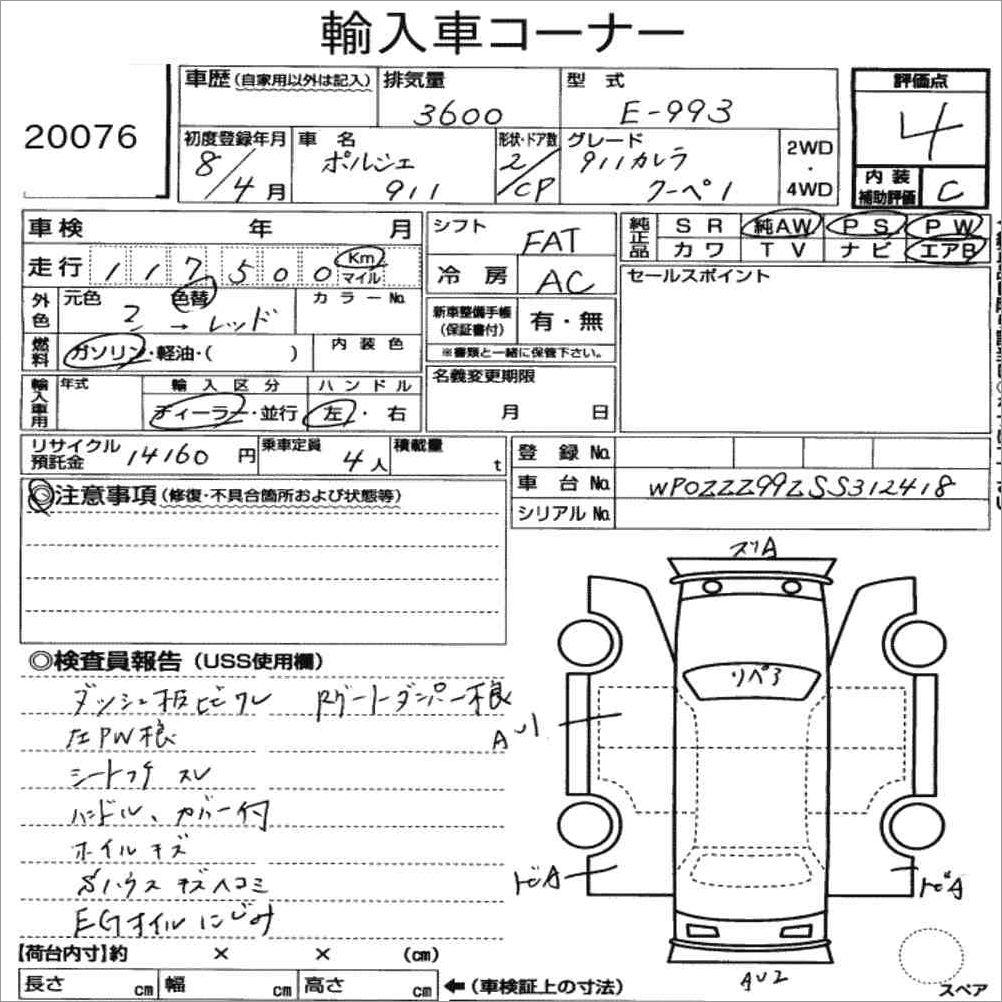 輸入車コーナー
20076
車歴(自家用以外は記入) 排気量 3600 型式 E-993
初度登録年月 8/4月 車名 ポルシェ 911 形状・ドア数 2/CP グレード 911カレラ クーペ1 2WD・4WD
評価点 4
内装補助評価 C
車検 年 月
走行 117500 Km マイル
外色 元色 2 → 色替 レッド カラーNo.
燃料 ガソリン・軽油・( ) 内装色
輸入車用 年式 輸入区分 ディーラー・並行 ハンドル 左・右
シフト FAT
冷房 AC
新車整備手帳(保証書付) 有・無
※書類と一緒に保管下さい。
名義変更期限
月 日
純正品 SR 純AW PS PW
カワ TV ナビ エアB
セールスポイント
リサイクル預託金 14160円 乗車定員 4人 積載量 t
登録No.
車台No. WP0ZZZ99ZSS312418
シリアルNo.
◎注意事項(修復・不具合箇所および状態等)
◎検査員報告(USS使用欄)
ダッシュ板ビビワレ Rゲートダンパー不良
左PW不良
シートコゲ スレ
ハンドル、カバー付
ホイルキズ
Sハウスキズヘコミ
EGオイルにじみ
スリA
リペ3
AU1
トビA
トビA
AU2
【荷台内寸】約 × × (cm)
長さ cm 幅 cm 高さ cm ←(車検証上の寸法)
スペア